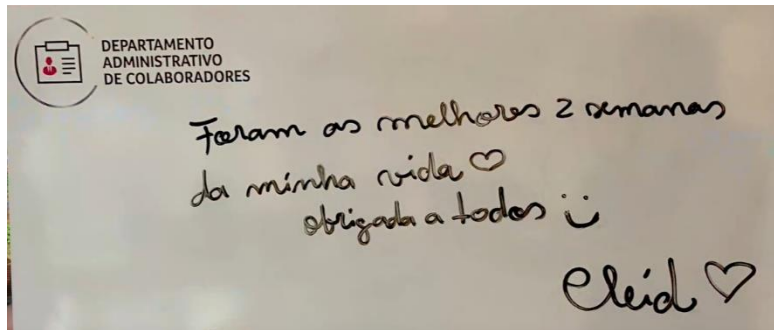 DEPARTAMENTO
ADMINISTRATIVO
DE COLABORADORES
Foram as melhores 2 semanas
da minha vida ♡
obrigada a todos :)
Cleid ♡